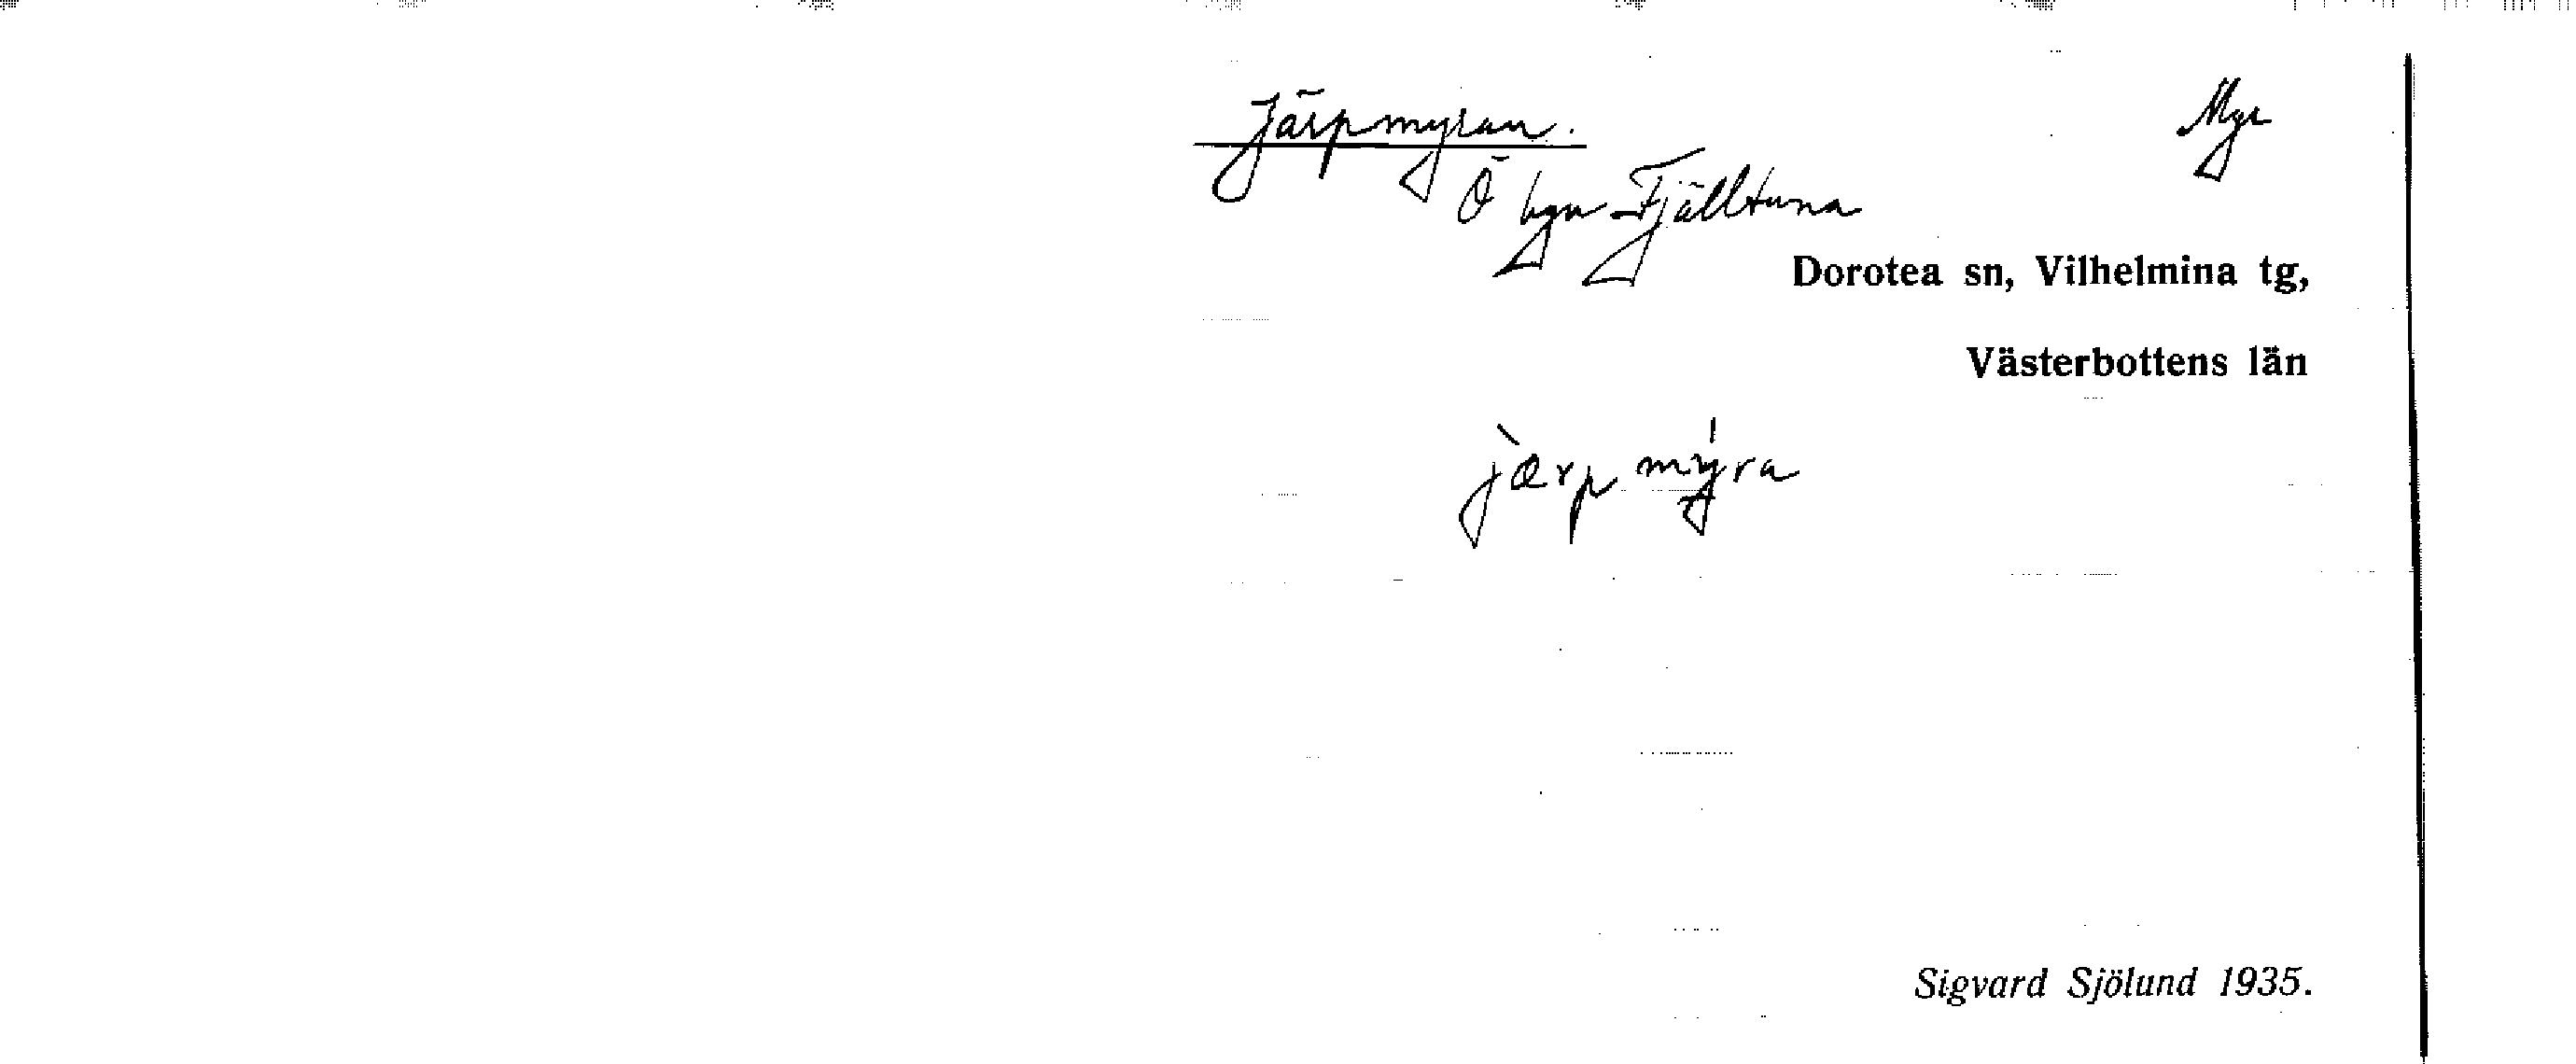 Järpmyran. Myr
Ö byn Fjälltuna
Dorotea sn, Vilhelmina tg,
Västerbottens län
jàrpmýra
Sigvard Sjölund 1935.